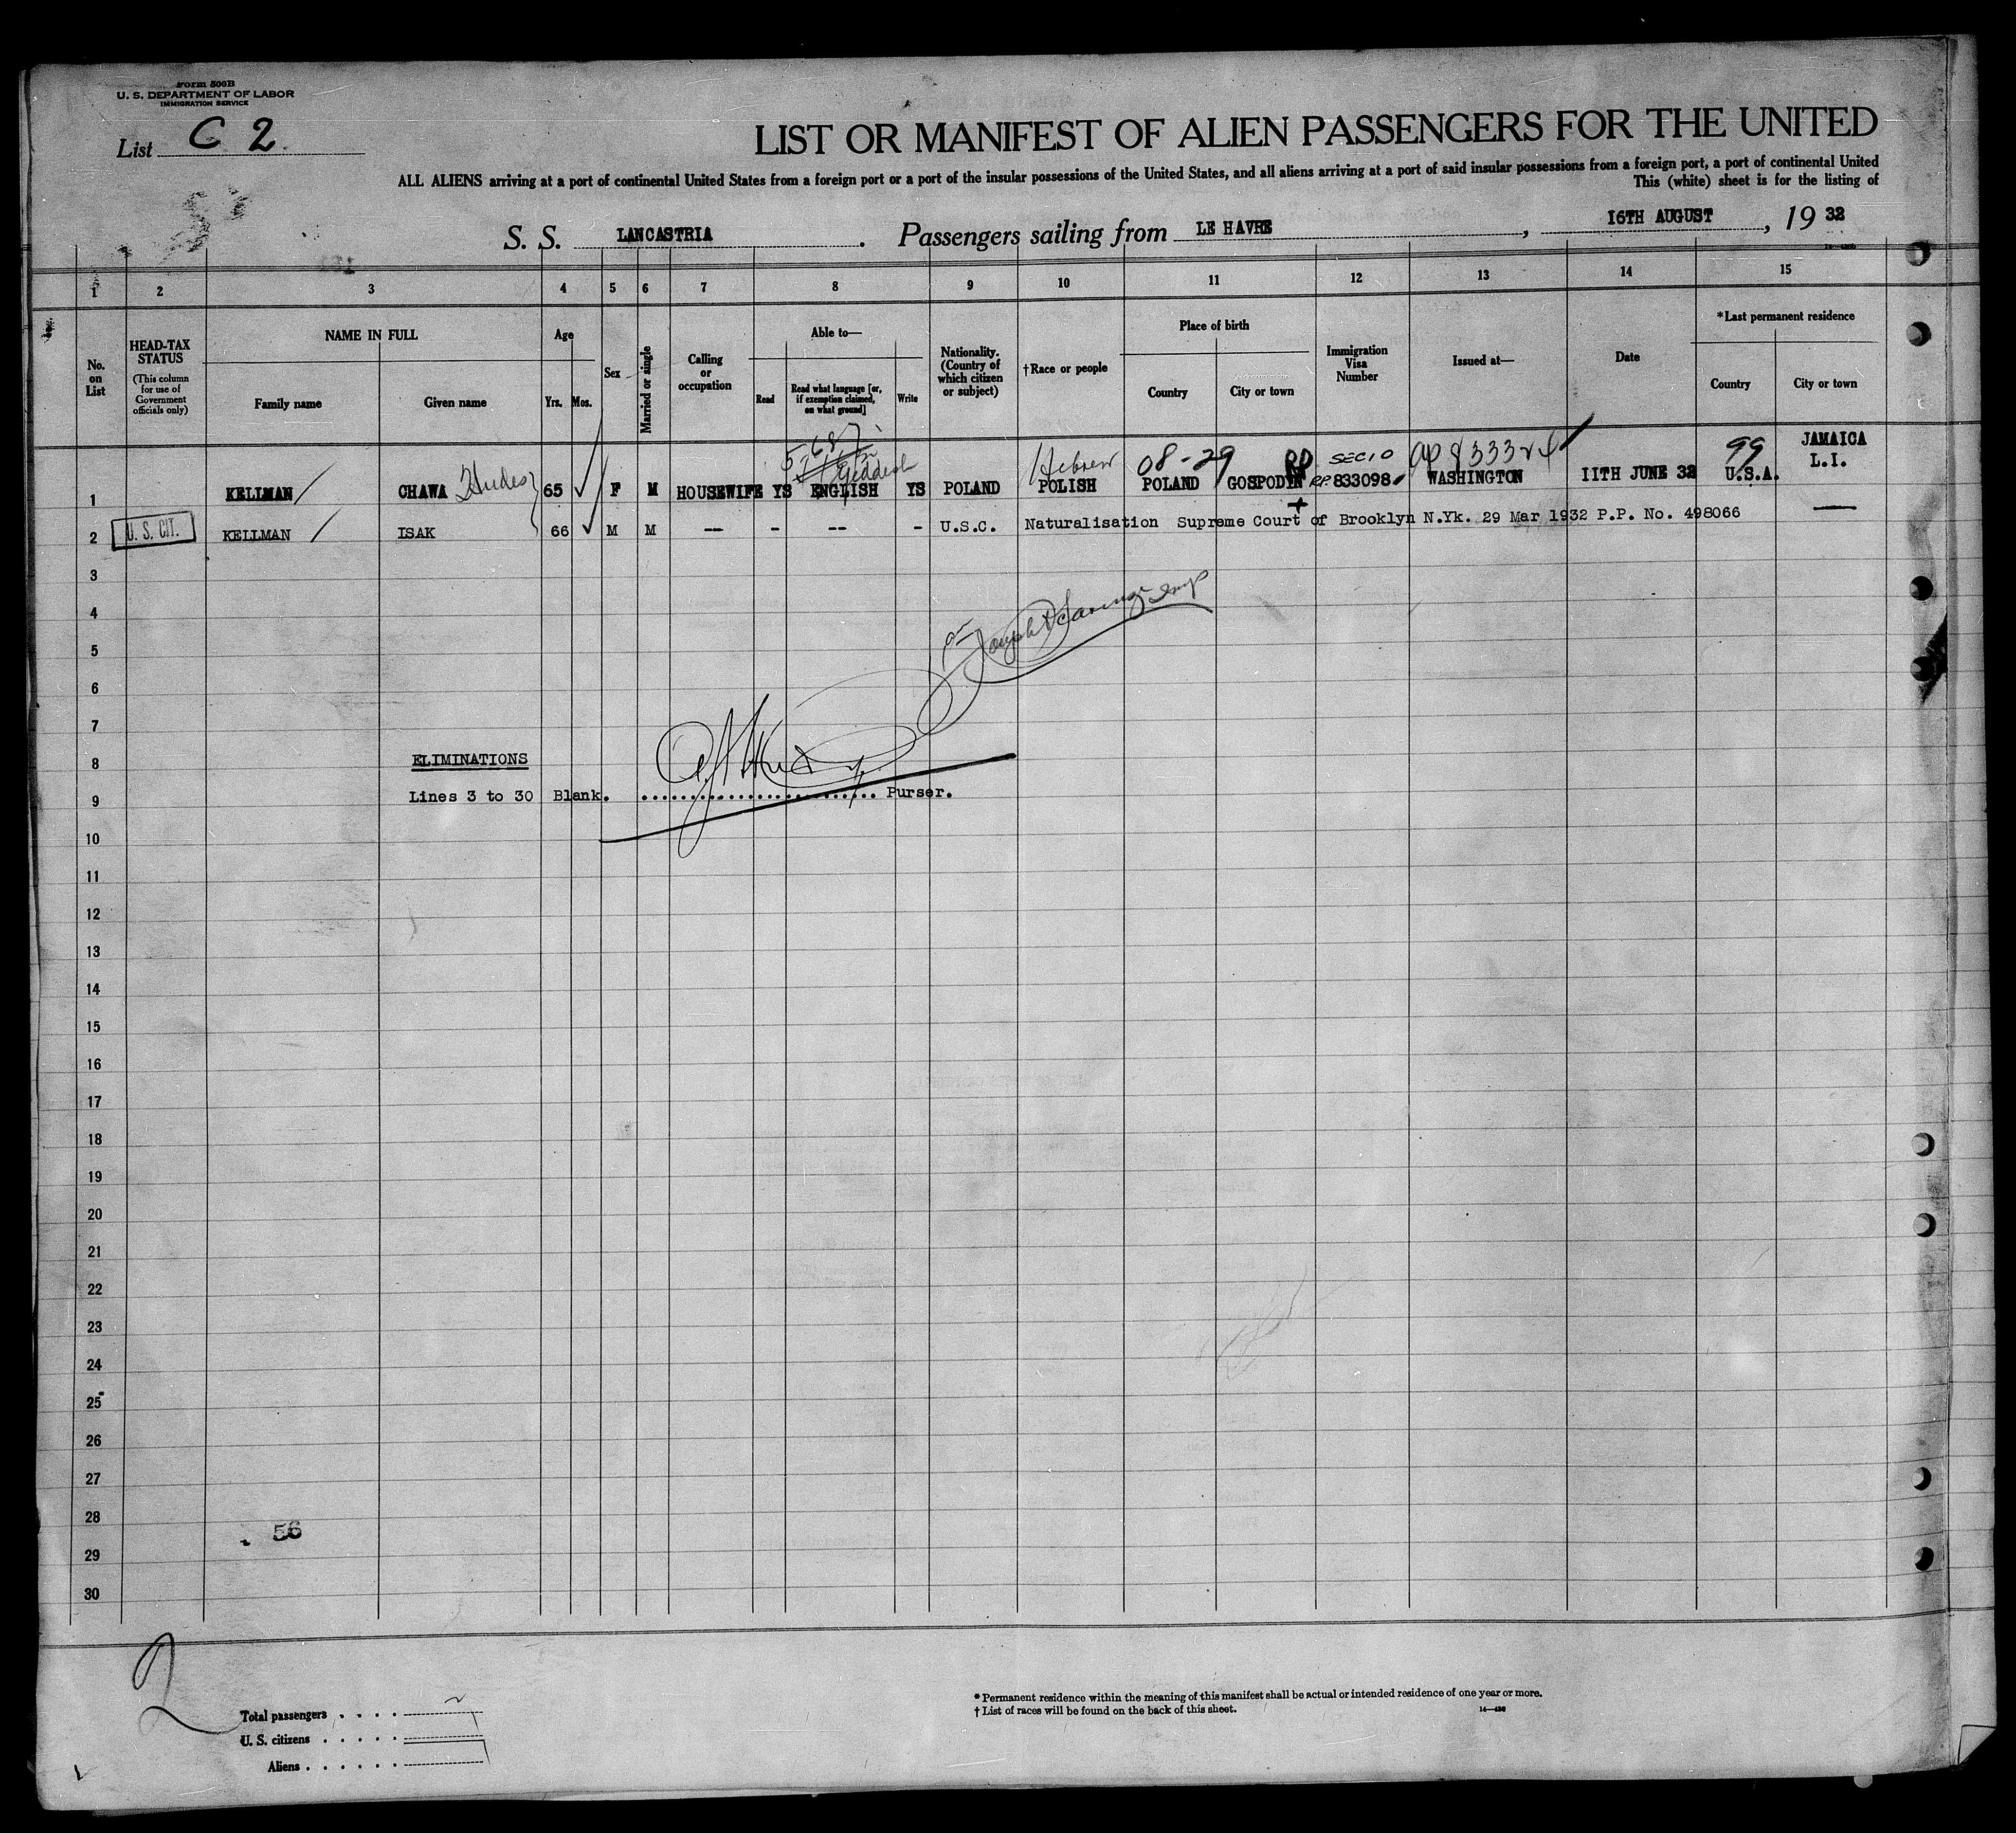 Form 500B
U. S. DEPARTMENT OF LABOR
IMMIGRATION SERVICE
List C 2
LIST OR MANIFEST OF ALIEN PASSENGERS FOR THE UNITED
ALL ALIENS arriving at a port of continental United States from a foreign port or a port of the insular possessions of the United States, and all aliens arriving at a port of said insular possessions from a foreign port, a port of continental United
This (white) sheet is for the listing of
S. S. LANCASTRIA. Passengers sailing from LE HAVRE, 16TH AUGUST, 19 32
1 2 3 4 5 6 7 8 9 10 11 12 13 14 15
No. on List
HEAD-TAX STATUS
(This column for use of Government officials only)
NAME IN FULL
Family name
Given name
Age
Yrs. Mos.
Sex
Married or single
Calling or occupation
Able to—
Read
Read what language [or, if exemption claimed, on what ground]
Write
Nationality. (Country of which citizen or subject)
†Race or people
Place of birth
Country
City or town
Immigration Visa Number
Issued at—
Date
*Last permanent residence
Country
City or town
Hebrew 08-29 SEC10 99 JAMAICA L.I.
Yiddish
1 KELLMAN CHAWA Hudes 65 F M HOUSEWIFE YS ENGLISH YS POLAND POLISH POLAND GOSPODIN RP 833098 WASHINGTON 11TH JUNE 32 U.S.A.
2 U. S. CIT. KELLMAN ISAK 66 M M -- - -- - U.S.C. Naturalisation Supreme Court of Brooklyn N.Yk. 29 Mar 1932 P.P. No. 498066
3
4
5
6
7
8 ELIMINATIONS
9 Lines 3 to 30 Blank. ........................ Purser.
10
11
12
13
14
15
16
17
18
19
20
21
22
23
24
25
26
27
28
56
29
30
2
Total passengers . . . .
U. S. citizens . . . . .
Aliens . . . . . .
* Permanent residence within the meaning of this manifest shall be actual or intended residence of one year or more.
† List of races will be found on the back of this sheet.